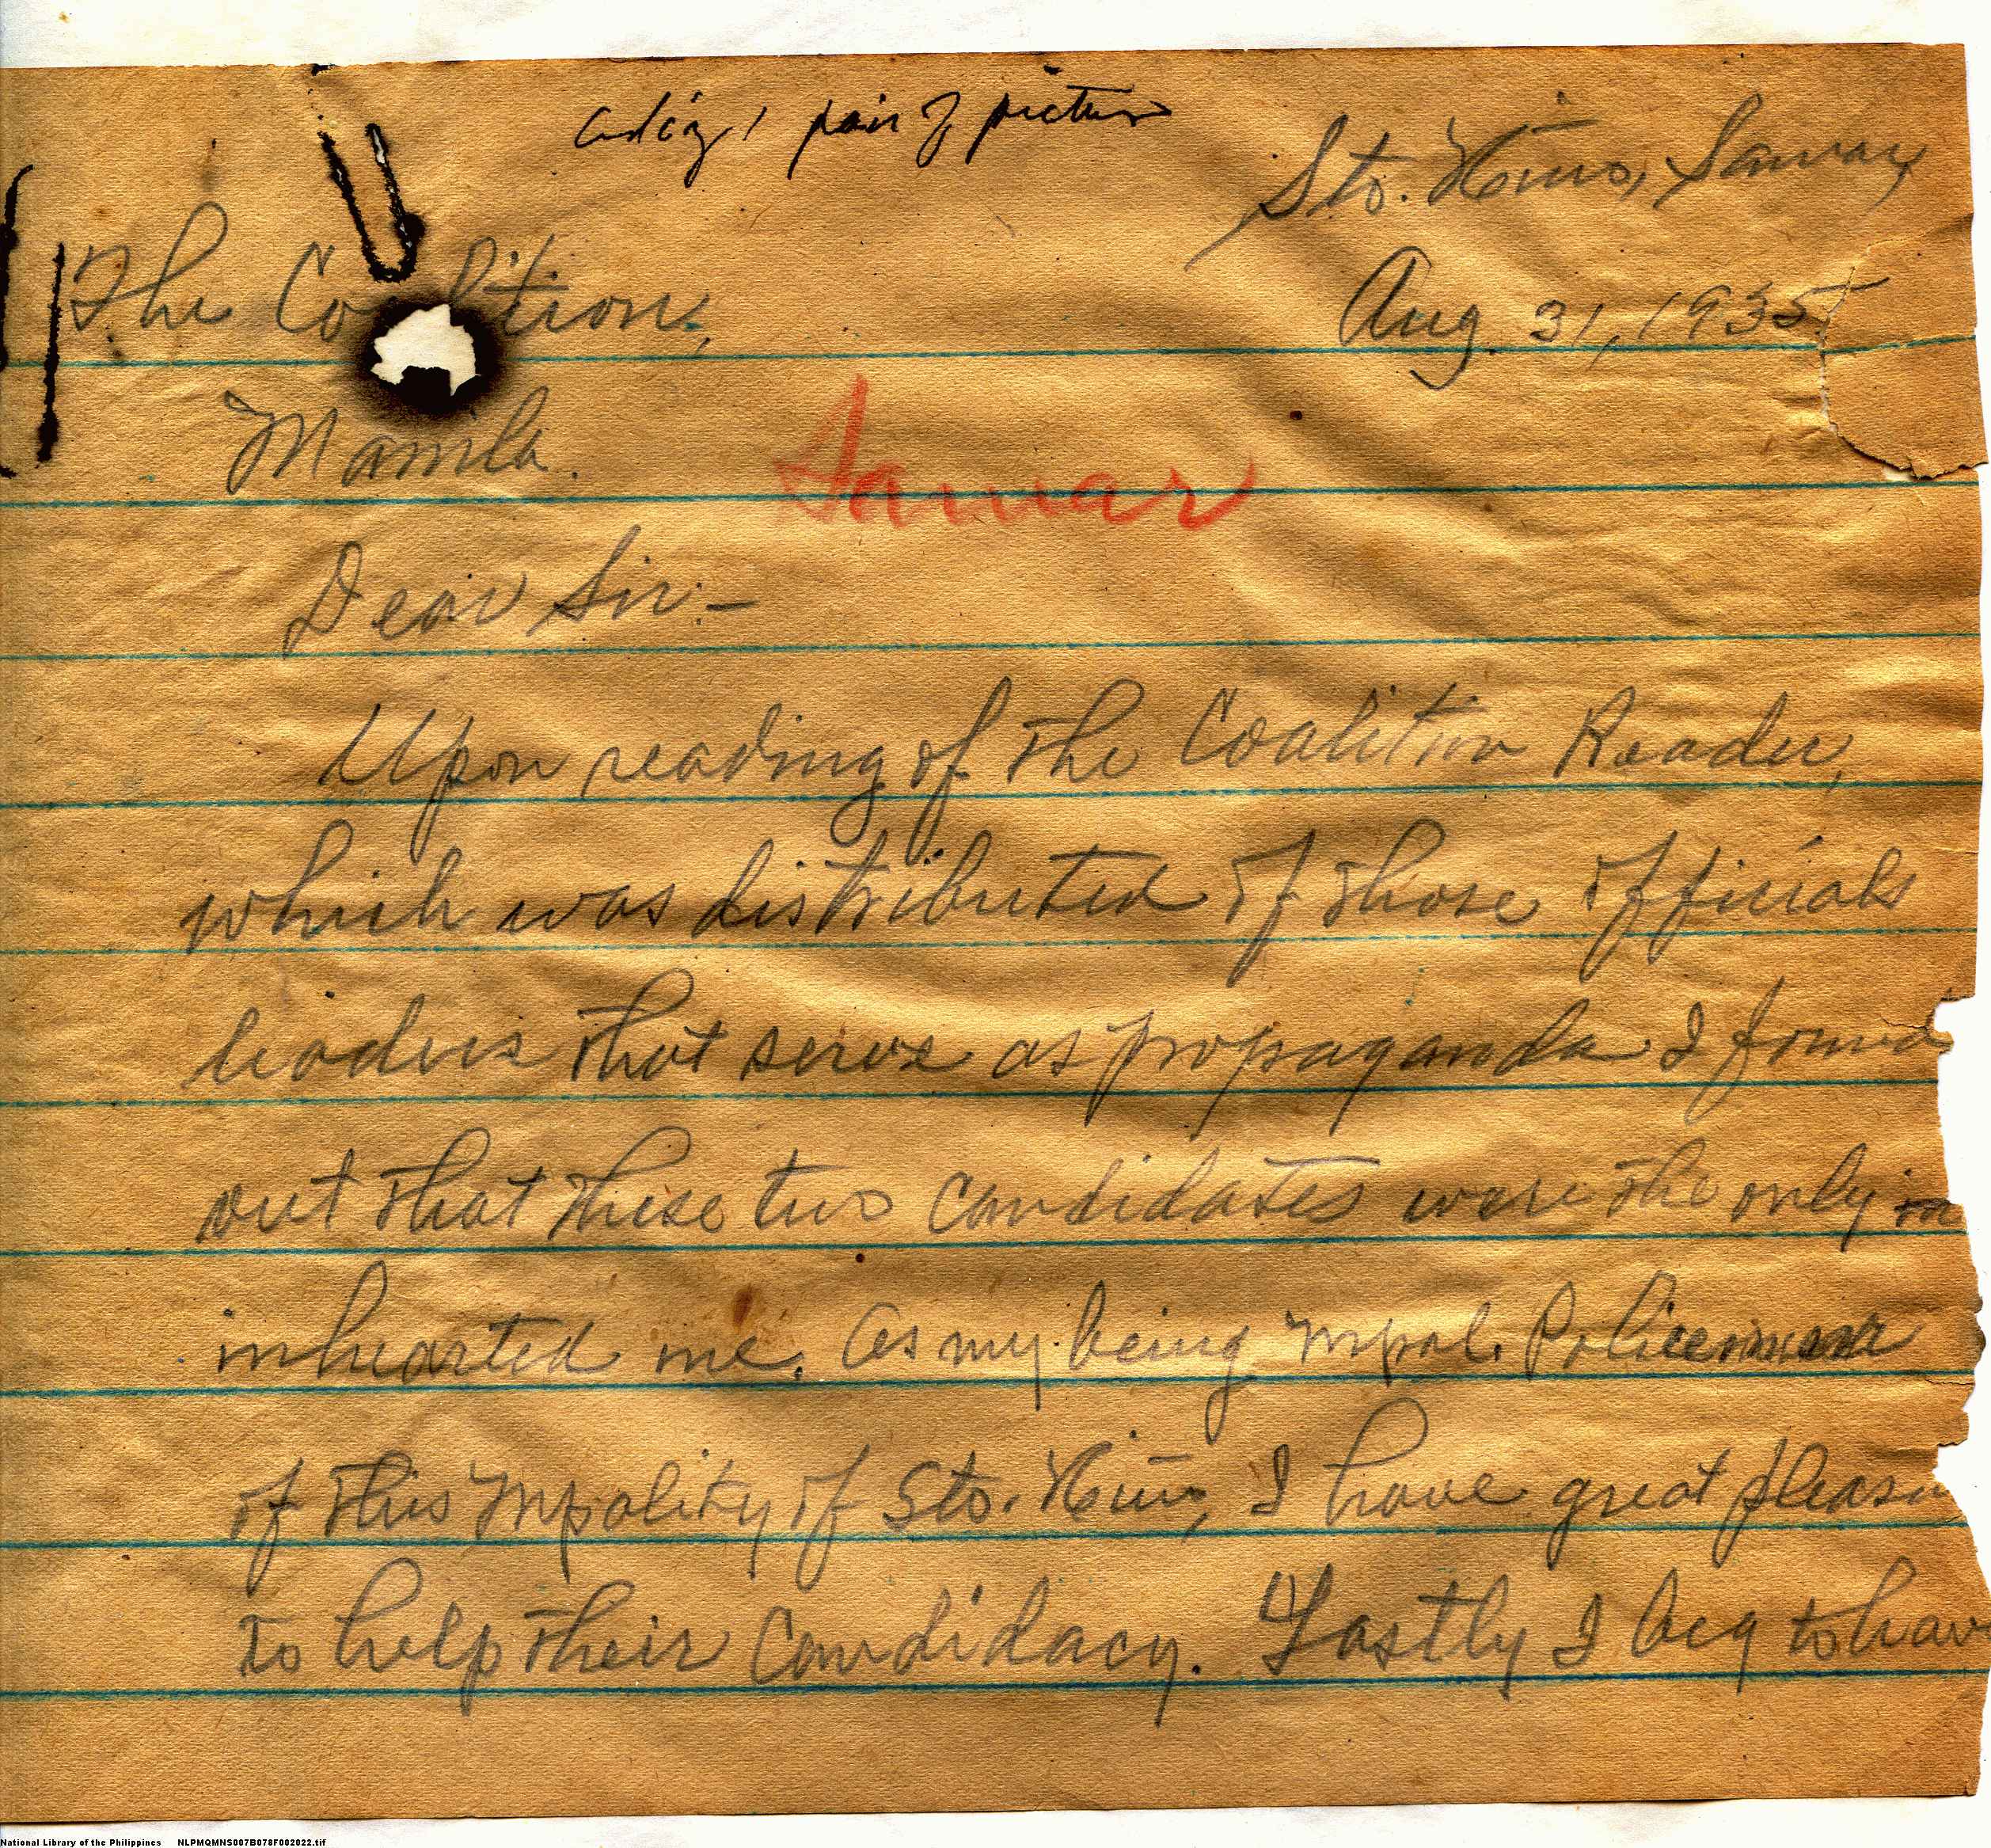 1 pair of picture
Sto. Niño, Samar
The Co lition,
Aug. 31, 1935
Manila.
Samar
Dear Sir:-
Upon reading of the Coalition Reader,
which was distributed of those officials
leaders that serve as propaganda I found
out that these two candidates were the only in
inhearted me. As my being mpal. Policeman
of this mpality of Sto. Niño, I have great pleasu
to help their Candidacy. Lastly I beg to have
National Library of the Philippines NLPMQMNS007B078F002022.tif